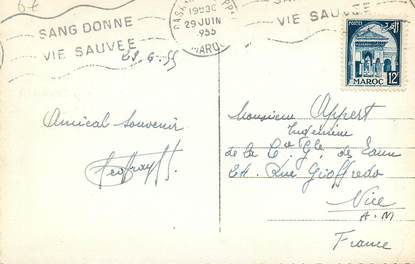 SANG DONNE
VIE SAUVEE
29 JUIN
1955
MAROC
SANG DONNE
VIE SAUVEE
POSTES
MAROC 12F
29-6-55
Amical souvenir
Monsieur Appert
Ingénieur
de la Cie Gle de Eaux
Rue Gioffredo
Nice
A-M
France